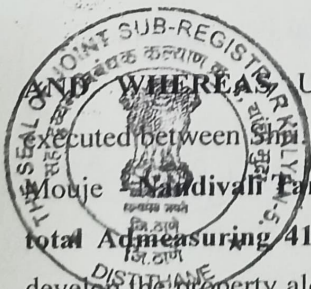 THE SEAL OF JOINT SUB-REGISTRAR KALYAN-5,
DIST.THANE
सत्यमेव जयते
जि.ठाणे
AND WHEREAS U
executed between Shri.
Mouje Nandivali
total Admeasuring 41
develop the property al